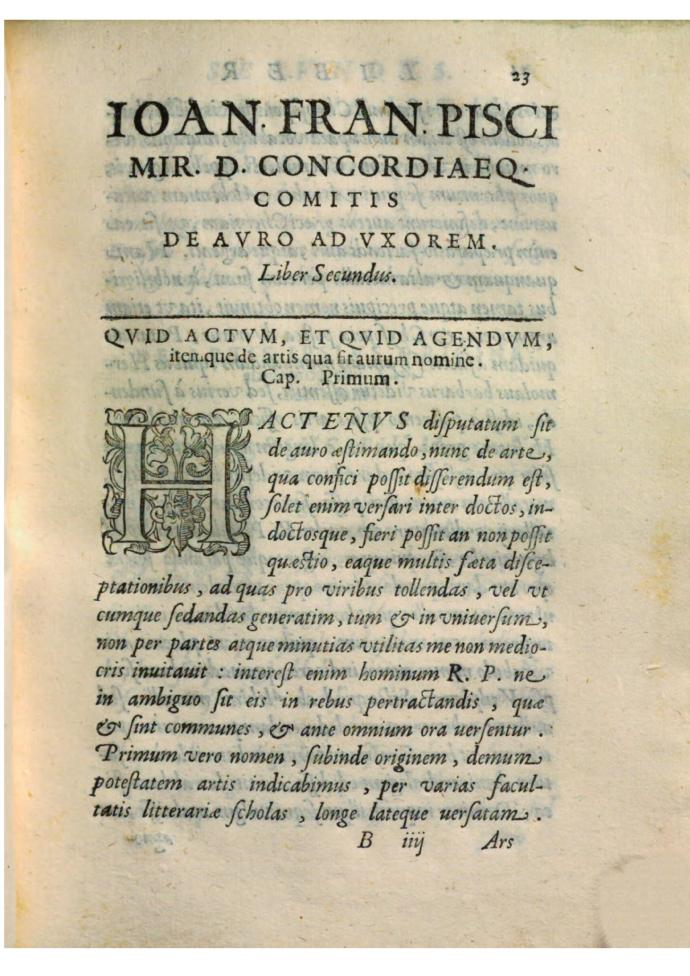 23
IOAN. FRAN. PISCI
MIR. D. CONCORDIAEQ.
COMITIS
DE AVRO AD VXOREM.
Liber Secundus.
QVID ACTVM, ET QVID AGENDVM,
itemque de artis qua fit aurum nomine.
Cap. Primum.
HACTENVS disputatum sit
de auro æstimando, nunc de arte,
qua confici possit disserendum est,
solet enim versari inter doctos, in-
doctosque, fieri possit an non possit
quæstio, eaque multis fæta disce-
ptationibus, ad quas pro viribus tollendas, vel vt
cumque sedandas generatim, tum & in vniuersum,
non per partes atque minutias vtilitas me non medio-
cris inuitauit : interest enim hominum R. P. ne
in ambiguo sit eis in rebus pertractandis, quæ
& sint communes, & ante omnium ora uersentur.
Primum vero nomen, subinde originem, demum
potestatem artis indicabimus, per varias facul-
tatis litterariæ scholas, longe lateque uersatam.
B iiij Ars